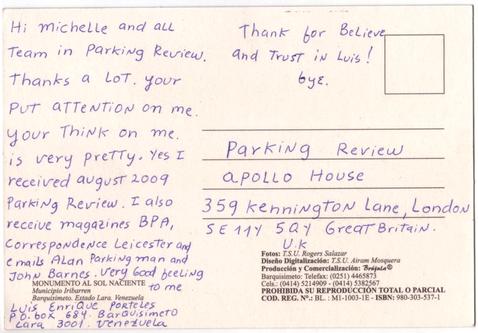 Hi michelle and all
Team in Parking Review.
Thanks a LOT. your
PUT ATTENTION on me.
your Think on me.
is very pretty. Yes I
received august 2009
Parking Review. I also
receive magazines BPA,
Correspondence Leicester and
emails ALAN Parking man and
John Barnes. Very Good feeling
to me
Luis Enrique Porteles
P.O. box 684. Barquisimeto
Lara 3001. Venezuela
MONUMENTO AL SOL NACIENTE
Municipio Iribarren
Barquisimeto. Estado Lara. Venezuela
Thank for Believe
and Trust in Luis!
bye.
Parking Review
apollo House
359 Kennington Lane, London
SE11Y 5QY Great Britain.
U.K
Fotos: T.S.U. Rogers Salazar
Diseño Digitalización: T.S.U. Airam Mosquera
Producción y Comercialización:
Barquisimeto: Telefax: (0251) 4465873
Cels.: (0414) 5214909 - (0414) 5382567
PROHIBIDA SU REPRODUCCIÓN TOTAL O PARCIAL
COD. REG. Nº.: BL. : M1-1003-1E - ISBN: 980-303-537-1